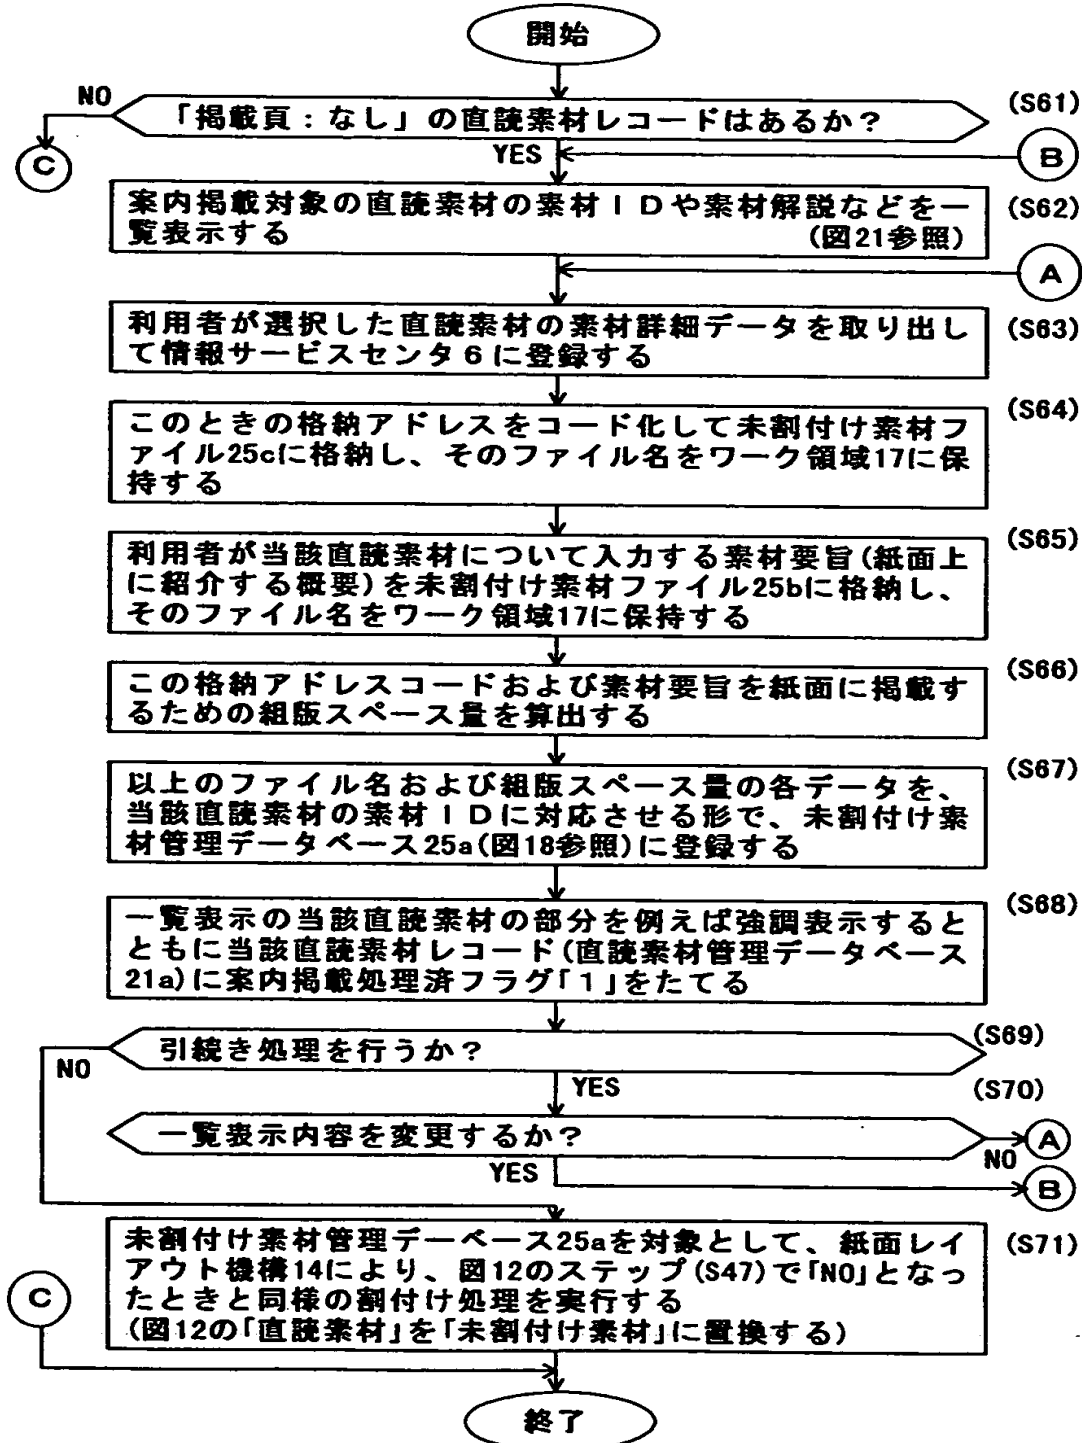 開始
NO
「掲載頁：なし」の直読素材レコードはあるか？
(S61)
C
YES
B
案内掲載対象の直読素材の素材ＩＤや素材解説などを一
覧表示する
(図21参照)
(S62)
A
利用者が選択した直読素材の素材詳細データを取り出し
て情報サービスセンタ６に登録する
(S63)
このときの格納アドレスをコード化して未割付け素材フ
ァイル25cに格納し、そのファイル名をワーク領域17に保
持する
(S64)
利用者が当該直読素材について入力する素材要旨(紙面上
に紹介する概要)を未割付け素材ファイル25bに格納し、
そのファイル名をワーク領域17に保持する
(S65)
この格納アドレスコードおよび素材要旨を紙面に掲載す
るための組版スペース量を算出する
(S66)
以上のファイル名および組版スペース量の各データを、
当該直読素材の素材ＩＤに対応させる形で、未割付け素
材管理データベース25a(図18参照)に登録する
(S67)
一覧表示の当該直読素材の部分を例えば強調表示すると
ともに当該直読素材レコード(直読素材管理データベース
21a)に案内掲載処理済フラグ「１」をたてる
(S68)
引続き処理を行うか？
(S69)
NO
YES
(S70)
一覧表示内容を変更するか？
A
NO
YES
B
未割付け素材管理デーベース25aを対象として、紙面レイ
アウト機構14により、図12のステップ(S47)で「NO」となっ
たときと同様の割付け処理を実行する
(図12の「直読素材」を「未割付け素材」に置換する)
(S71)
C
終了